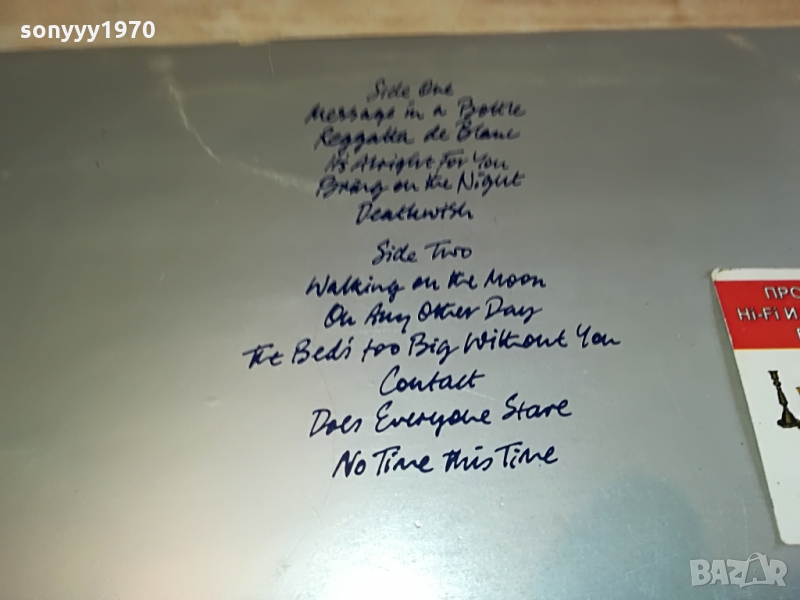 sonyyy1970
Side One
Message in a Bottle
Reggatta de Blanc
It's Alright For You
Bring on the Night
Deathwish
Side Two
Walking on the Moon
On Any Other Day
The Bed's too Big Without You
Contact
Does Everyone Stare
No Time this Time
ПРО
Hi-Fi И
BAZAR